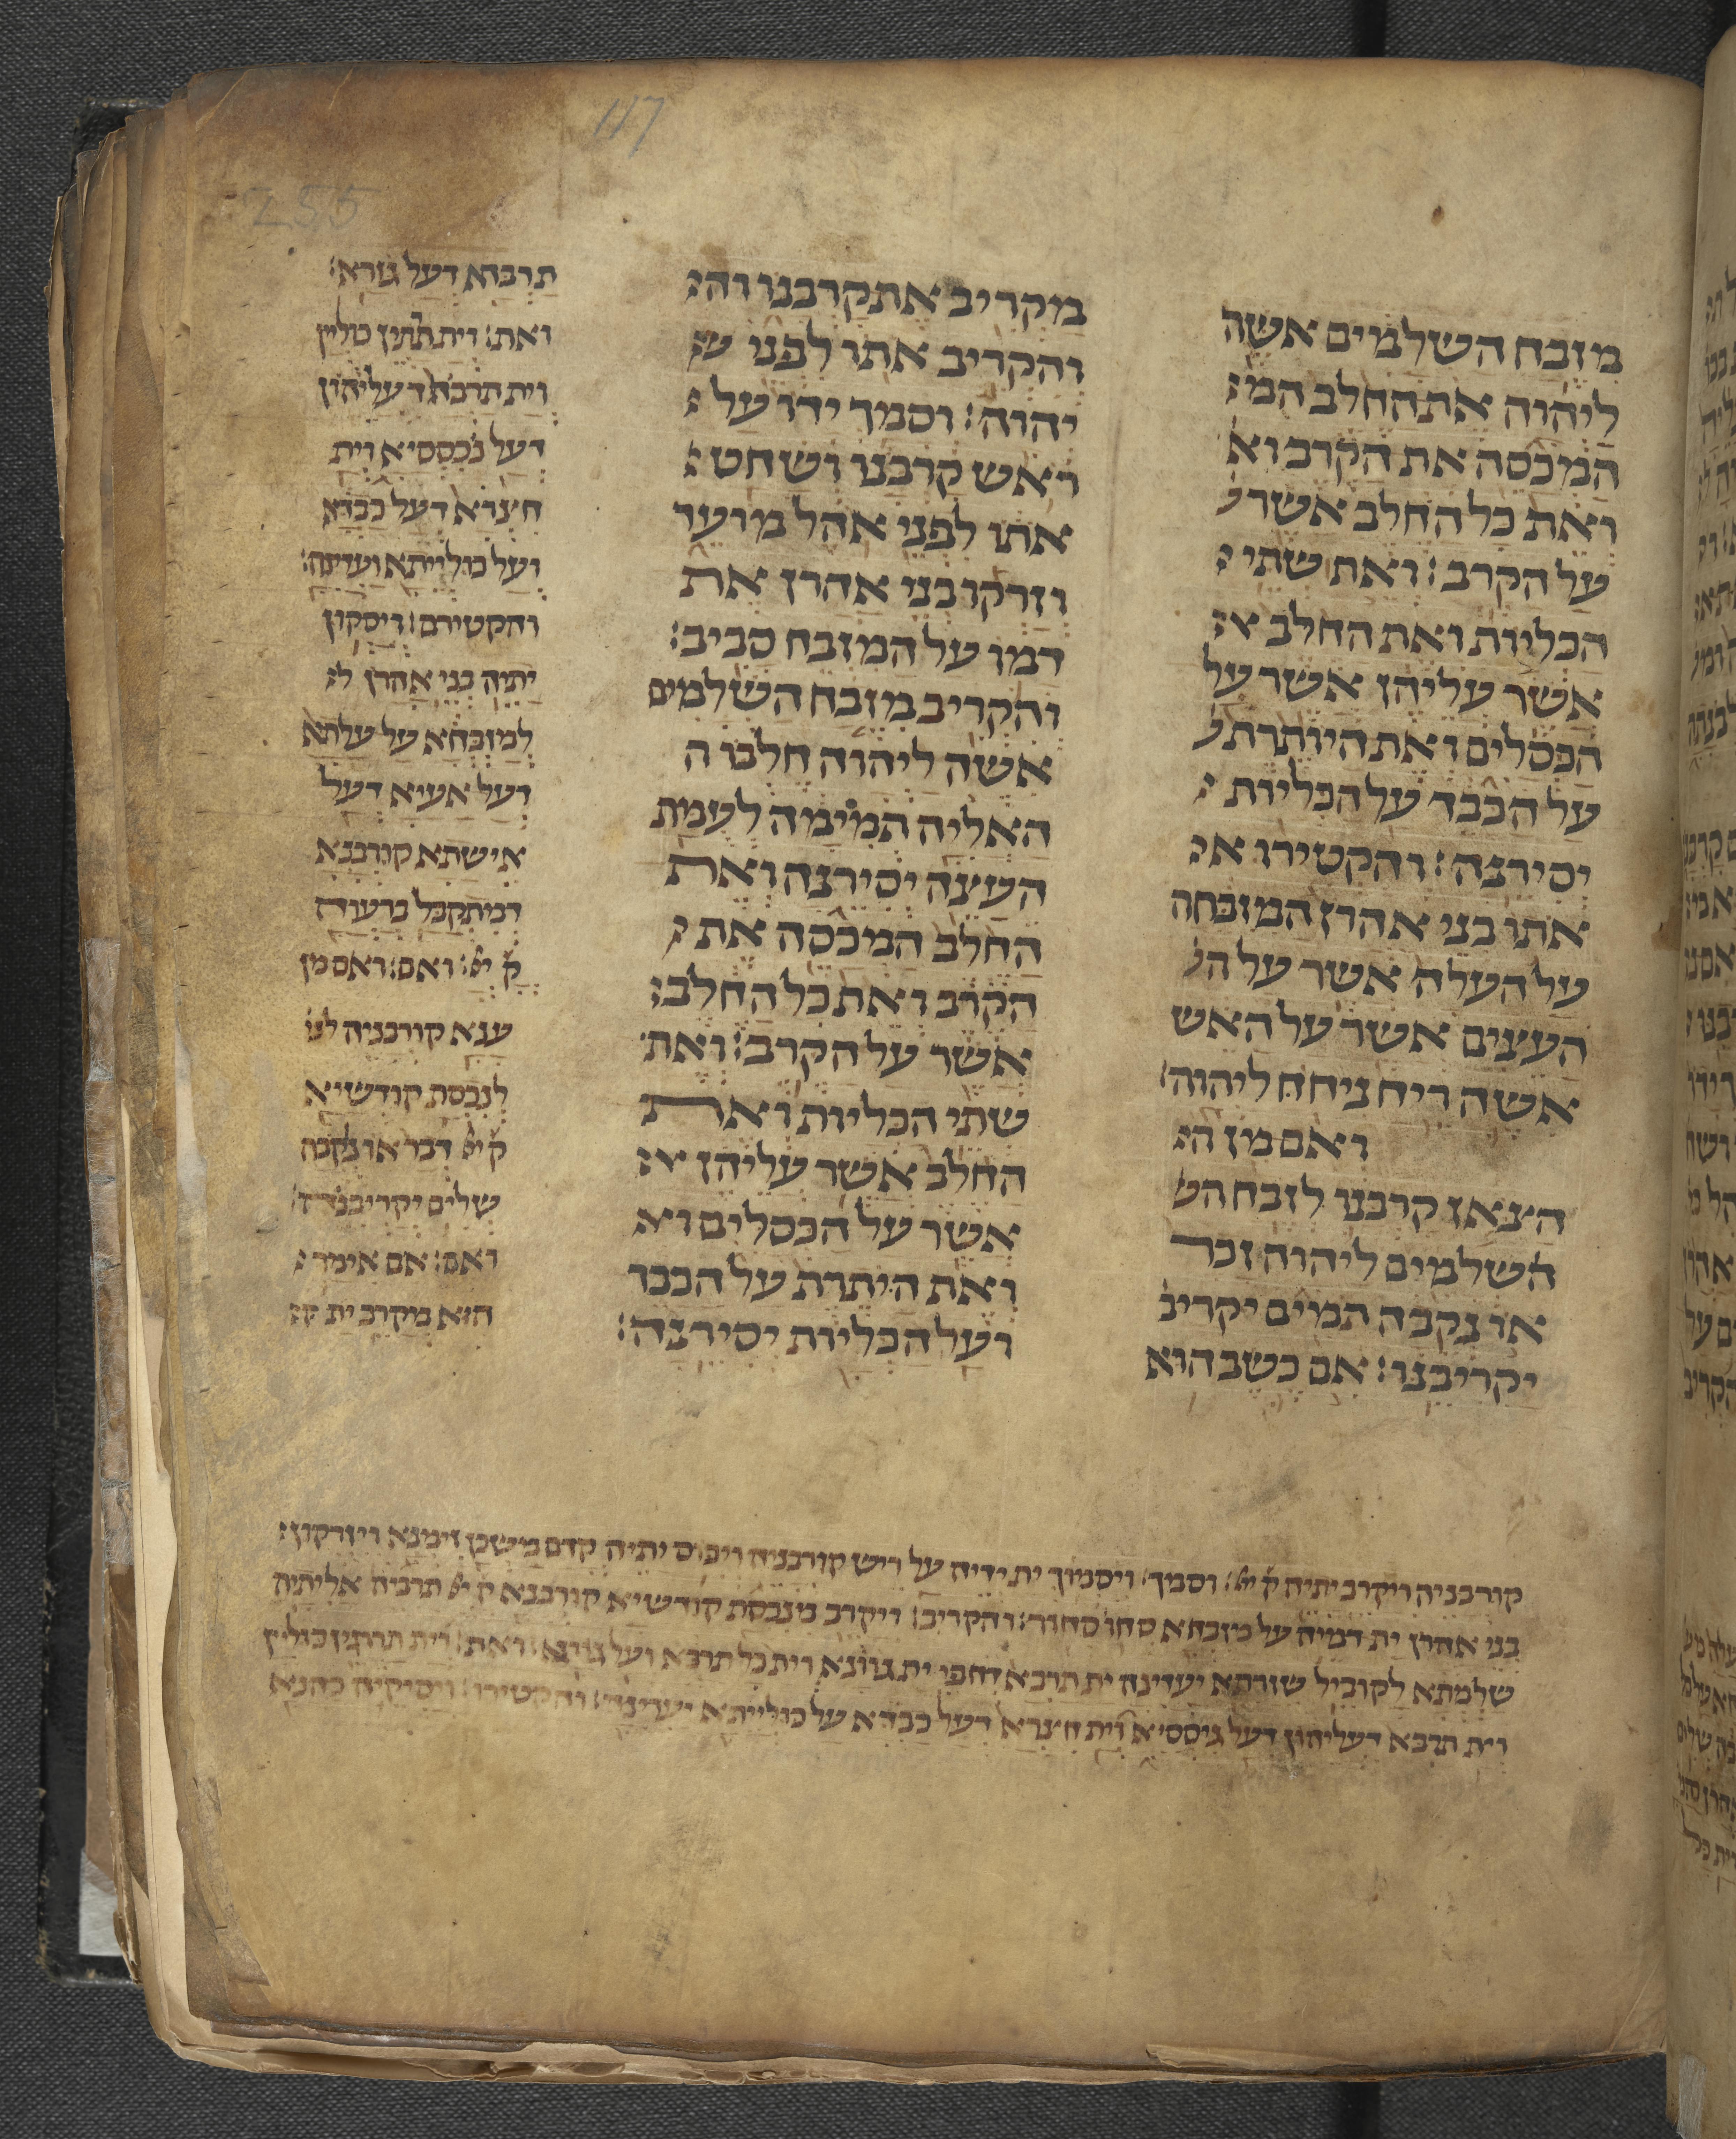 117
255
מזבח השלמים אשה
ליהוה את החלב המ
המכסה את הקרב וא
ואת כל החלב אשר
על הקרב׃ ואת שתי
הכליות ואת החלב א
אשר עליהן אשר על
הכסלים ואת היותרת
על הכבד על הכליות
יסירנה׃ והקטירו א
אתו בני אהרן המזבחה
על העלה אשר על ה
העצים אשר על האש
אשה ריח ניחח ליהוה׃
ואם מן ה
הצאן קרבנו לזבח הש
השלמים ליהוה זכר
או נקבה תמים יקריב
יקריבנו׃ אם כשב הוא
מקריב את קרבנו וה
והקריב אתו לפני ש
יהוה׃ וסמך ידו על
ראש קרבנו ושחט
אתו לפני אהל מועד
וזרקו בני אהרן את
דמו על המזבח סביב׃
והקריב מזבח השלמים
אשה ליהוה חלבו ה
האליה תמימה לעמת
העצה יסירנה ואת
החלב המכסה את
הקרב ואת כל החלב׃
אשר על הקרב׃ ואת
שתי הכליות ואת
החלב אשר עליהן א
אשר על הכסלים וא
ואת היתרת על הכבד
ועל הכליות יסירנה׃
תרבא דעל גורא׃
ואת׃ וית תרתין כולין
וית תרבא דעליהון
דעל גססיא וית
חיצרא דעל כבדא
ועל כולייתא יעדינה׃
והקטירם׃ ויסקון
יתיה בני אהרן ל
למזבחא על עלתא
דעל אעיא דעל
אישתא קורבנא
דמתקבל ברעוא
ק יי׃ ואם׃ ואם מן
ענא קורבניה לנ
לנכסת קודשיא
ק יי דכר או נקבה
שלים יקריבניה׃
ואם׃ אם אימר
הוא מקרב ית ק
קורבניה ויקרב יתיה ק יי׃ וסמך׃ ויסמוך ית ידיה על ריש קורבניה ויכוס יתיה קדם משכן זימנא ויזרקון
בני אהרן ית דמיה על מזבחא סחור סחור׃ והקריב׃ ויקרב מנכסת קודשיא קורבנא ק יי תרביה אליתיה
שלמתא לקוביל שזרתא יעדינה ית תרבא דחפי ית גווא וית כל תרבא דעל גווא׃ ואת׃ וית תרתין כולין
וית תרבא דעליהון דעל גיססיא וית חיצרא דעל כבדא על כולייתא יעדינה׃ והקטירו׃ ויסיקיה כהנא